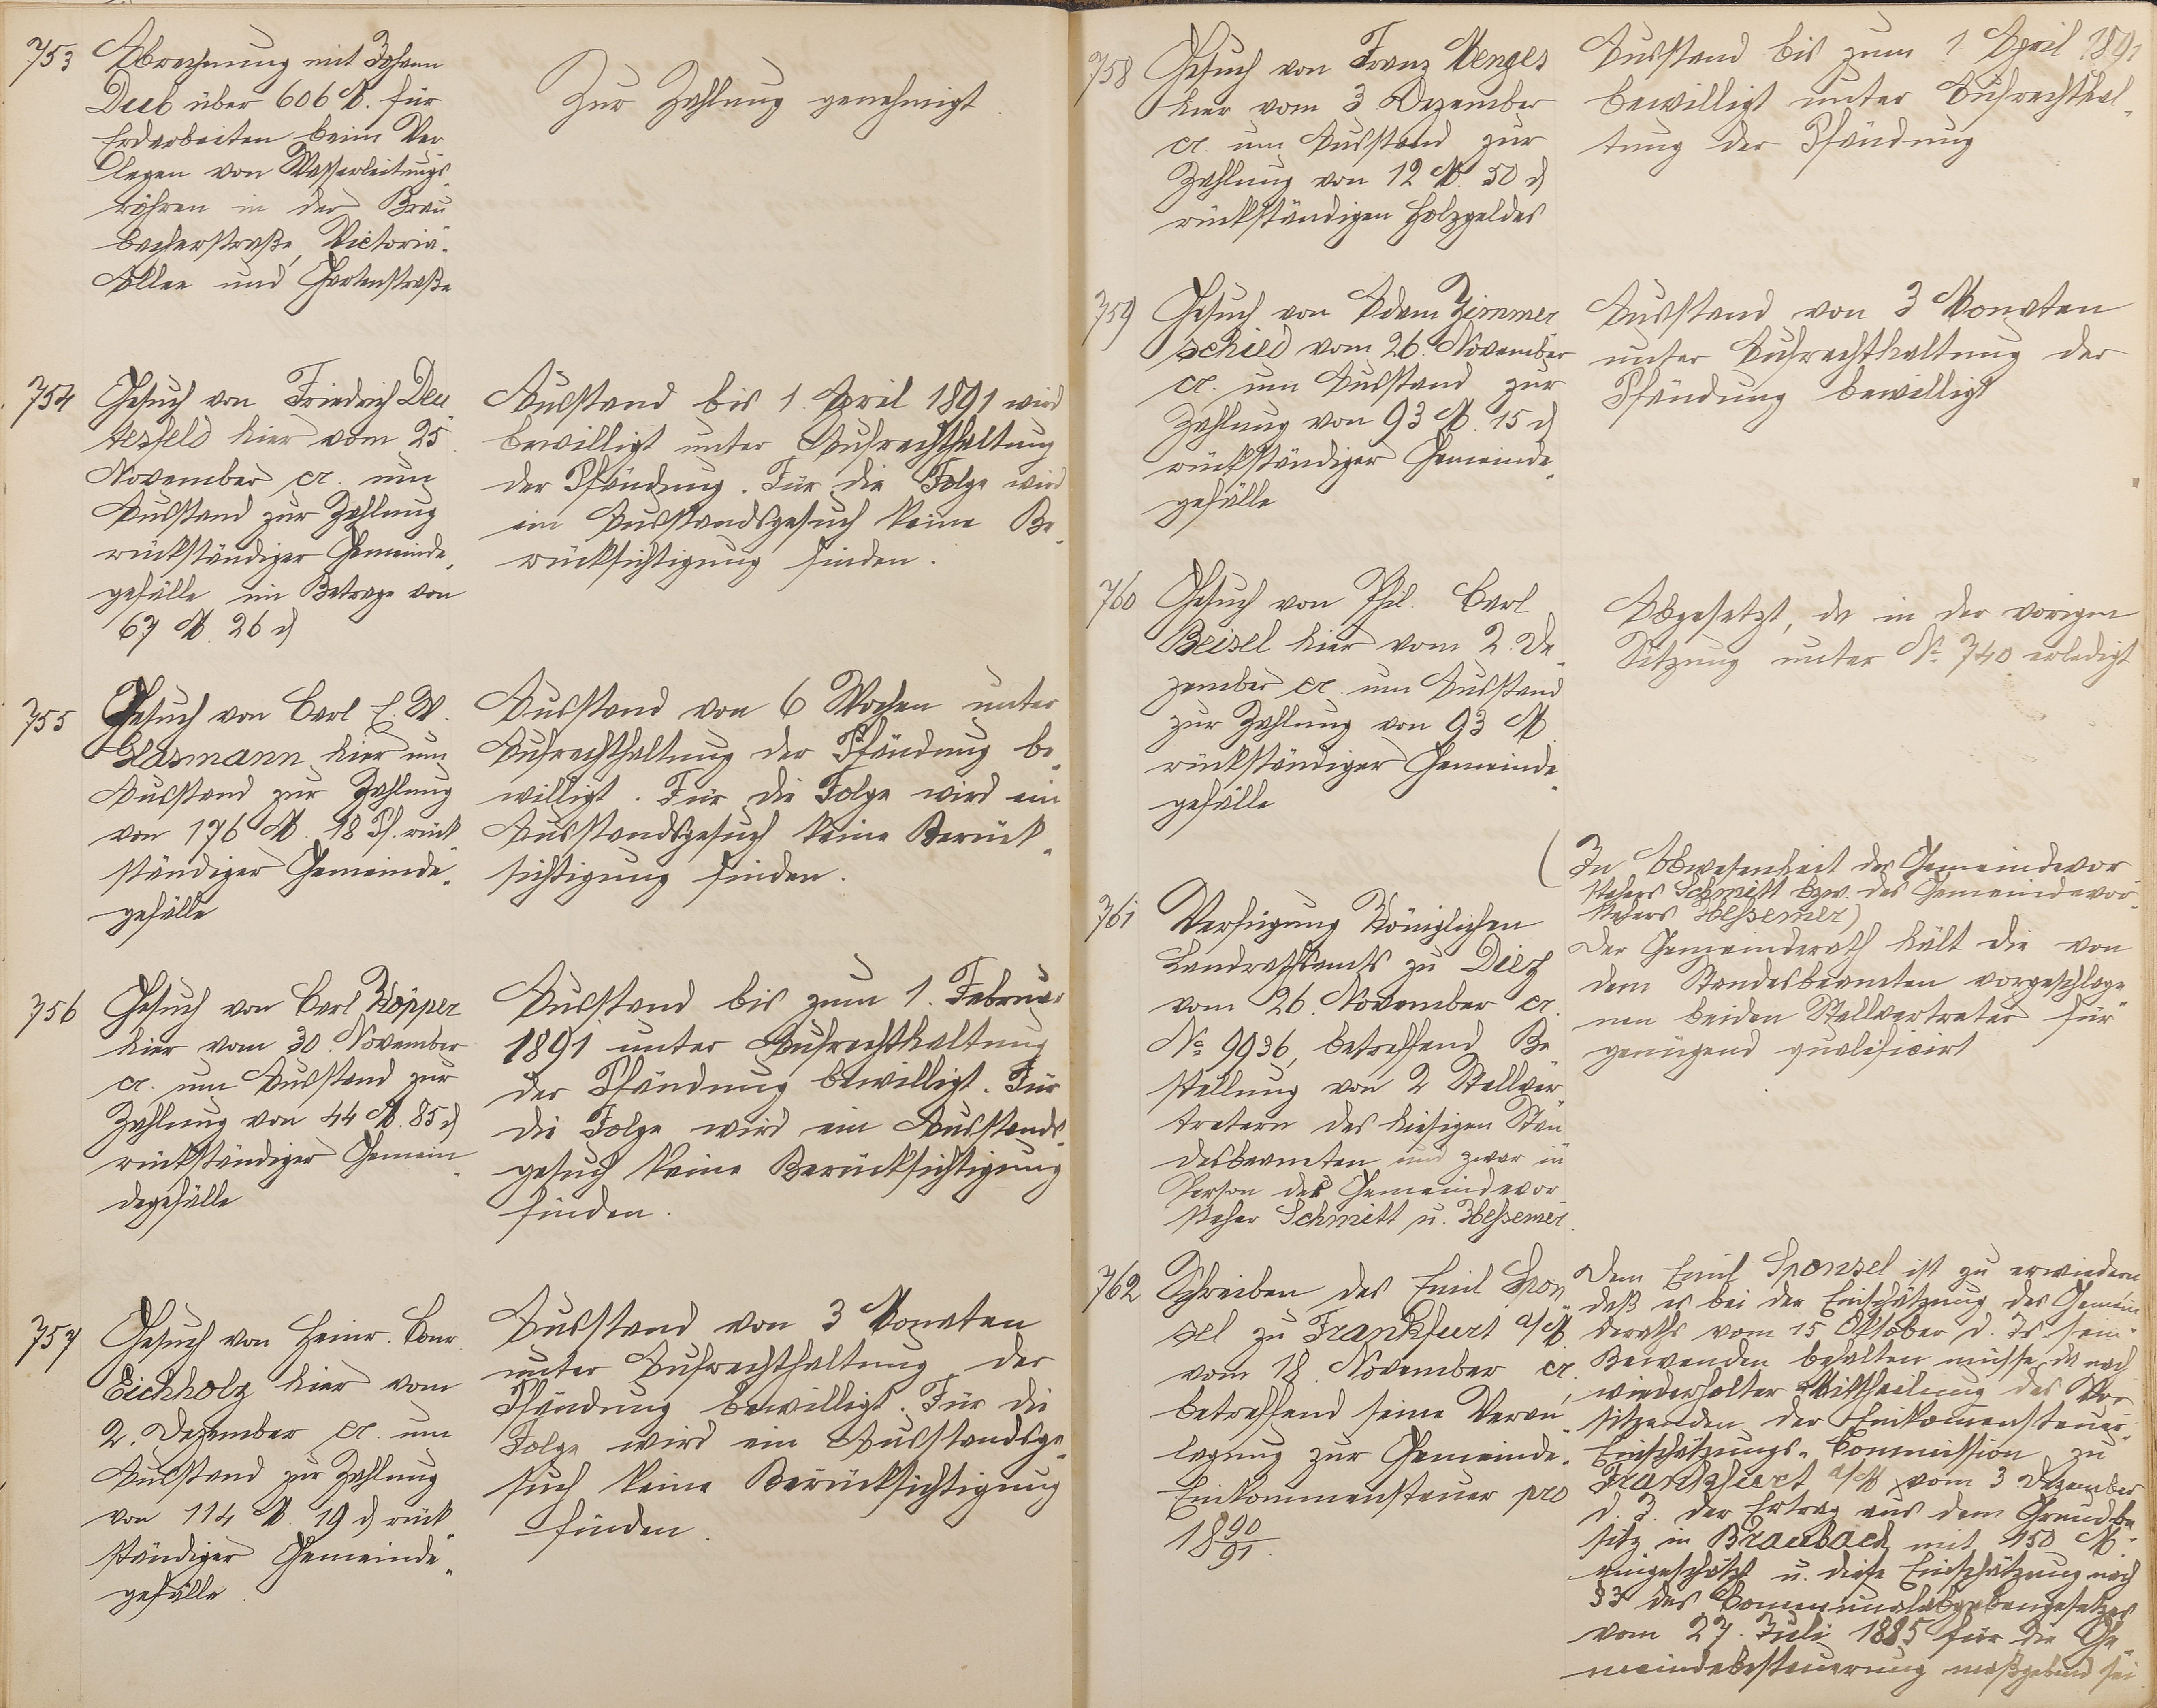 753
Abrechnung mit Johann
Deeb über 606 M. für
Erdarbeiten beim Ver
legen von Wasserleitungs-
röhren in der Brau
bacherstraße, Victoria-
Allee und Gartenstraße
Zur Zahlung genehmigt.
754
Gesuch von Friedrich Deu
tesfeld hier vom 25.
November cr. um
Ausstand zur Zahlung
rückständiger Gemeinde-
gefälle im Betrage von
67 M. 26 ₰
Ausstand bis 1. April 1891 wird
bewilligt unter Aufrechthaltung
der Pfändung. Für die Folge wird
ein Ausstandsgesuch keine Be-
rücksichtigung finden.
755
Gesuch von Carl E. W.
Glasmann hier um
Ausstand zur Zahlung
von 176 M. 18 Pf. rück-
ständiger Gemeinde-
gefälle
Ausstand von 6 Wochen unter
Aufrechthaltung der Pfändung be-
willigt. Für die Folge wird ein
Ausstandsgesuch keine Berück-
sichtigung finden.
756
Gesuch von Carl Köpper
hier vom 30. November
cr. um Ausstand zur
Zahlung von 44 M. 85 ₰
rückständiger Gemein-
degefälle
Ausstand bis zum 1. Februar
1891 unter Aufrechthaltung
der Pfändung bewilligt. Für
die Folge wird ein Ausstands-
gesuch keine Berücksichtigung
finden.
757
Gesuch von Heinr. Conr.
Eichholz hier vom
2. Dezember cr. um
Ausstand zur Zahlung
von 114 M. 19 ₰ rück-
ständiger Gemeinde-
gefälle.
Ausstand von 3 Monaten
unter Aufrechthaltung der
Pfändung bewilligt. Für die
Folge wird ein Ausstandsge-
such keine Berücksichtigung
finden.
758
Gesuch von Franz Menges
hier vom 3 Dezember
cr. um Ausstand zur
Zahlung von 12 M. 50 ₰
rückständigen Holzgeldes
Ausstand bis zum 1. April 1891
bewilligt unter Aufrechthal-
tung der Pfändung
759
Gesuch von Adam Zimmer
schied vom 26. November
cr. um Ausstand zur
Zahlung von 93 M. 15 ₰
rückständiger Gemeinde-
gefälle
Ausstand von 3 Monaten
unter Aufrechthaltung der
Pfändung bewilligt
760
Gesuch von Phil. Carl
Beisel hier vom 2. De-
zember cr. um Ausstand
zur Zahlung von 93 M
rückständiger Gemeinde-
gefälle
Abgesetzt, da in der vorigen
Sitzung unter No 740 erledigt
761
Verfügung Königlichen
Landrathsamts zu Diez
vom 26. November cr.
No 9936, betreffend Be-
stellung von 2 Stellver-
tretern des hiesigen Stan
desbeamten und zwar in
Person der Gemeindevor-
steher Schmitt u. Heßemer.
(In Abwesenheit des Gemeindevor-
stehers Schmitt bzw. des Gemeindevor-
stehers Heßemer)
Der Gemeinderath hält die von
dem Standesbeamten vorgeschlage
nen beiden Stellvertreter für
genügend qualificirt
762
Schreiben des Emil Spon-
sel zu Frankfurt a/M.
vom 18. November cr.,
betreffend seine Veran-
lagung zur Gemeinde-
Einkommensteuer pro
18 90/91.
Dem Emil Sponsel ist zu erwiedern
daß es bei der Einschätzung des Gemein
deraths vom 15 Oktober d. Js sein
Bewenden behalten müsse, da nach
wiederholter Mittheilung des Vor-
sitzenden der Einkommensteuer-
Einschätzungs-Commission zu
Frankfurt a/M vom 3. Dezember
d. J. der Ertrag aus dem Grundbe
sitz in Braubach mit 450 M.
eingeschätzt u. diese Einschätzung nach
§ 3 des Communalabgabengesetzes
vom 27. Juli 1885 für die Ge-
meindebesteuerung maßgebend sei.